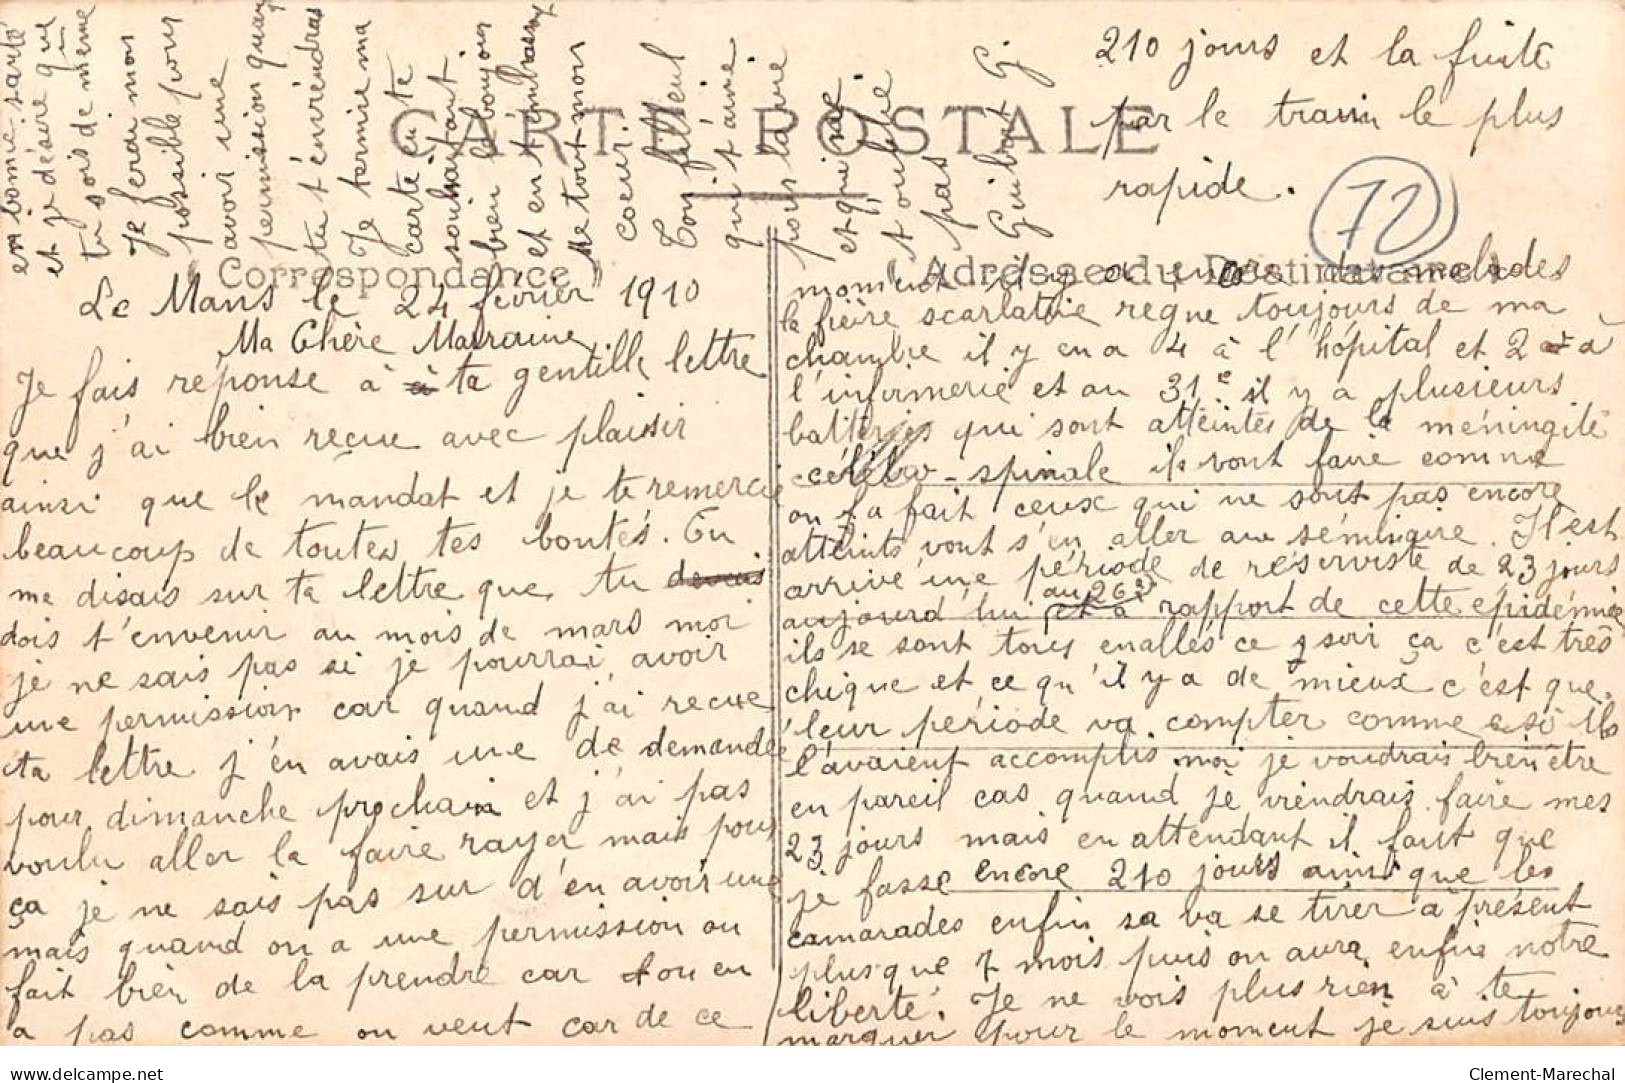 CARTE POSTALE
Correspondance
Adresse du Destinataire
Le Mans le 24 février 1910
Ma Chère Marraine
Je fais réponse à ta gentille lettre
que j'ai bien reçue avec plaisir
ainsi que le mandat et je te remercie
beaucoup de toutes tes bontés. Tu
me disais sur ta lettre que tu devais
dois t'envenir au mois de mars moi
je ne sais pas si je pourrai avoir
une permission car quand j'ai recue
ta lettre j'en avais une de demandée
pour dimanche prochain et j'ai pas
voulu aller la faire rayer mais pour
ça je ne sais pas sur d'en avoir une
mais quand on a une permission on
fait bien de la prendre car on en
a pas comme on veut car de ce
moment il y a encore des malades
la fièvre scarlatine regne toujours de ma
chambre il y en a 4 à l'hôpital et 2 à
l'infirmerie et au 31e il y a plusieurs
batteries qui sont atteintes de la méningite
cérébro-spinale ils vont faire comme
on fa fait ceux qui ne sont pas encore
atteints vont s'en aller au séminaire. Il est
arrivé une période de réserviste de 23 jours
au 26e
aujourd'hui et à rapport de cette epidémie
ils se sont tous enallés ce soir ça c'est très
chique et ce qu'il y a de mieux c'est que
leur période va compter comme si ils
l'avaient accomplis moi je voudrais bien être
en pareil cas quand je viendrais faire mes
23 jours mais en attendant il faut que
je fasse encore 210 jours ainsi que les
camarades enfin sa va se tirer à présent
plus que 7 mois puis on aura enfin notre
liberté. Je ne vois plus rien à te
marquer pour le moment je suis toujours
en bonne santé
et je désire que
tu sois de même
Je ferai mon
possible pour
avoir une
permission quand
tu t'enviendras
Je termine ma
carte en te
souhaitant
bien le bonjour
et en t'embrassant
de tout mon
coeur
Ton filleul
qui t'aime
pour la vie
et qui ne
t'oublie
pas
Guibert G
210 jours et la fuite
par le train le plus
rapide.
72
Clement-Marechal
delcampe.net